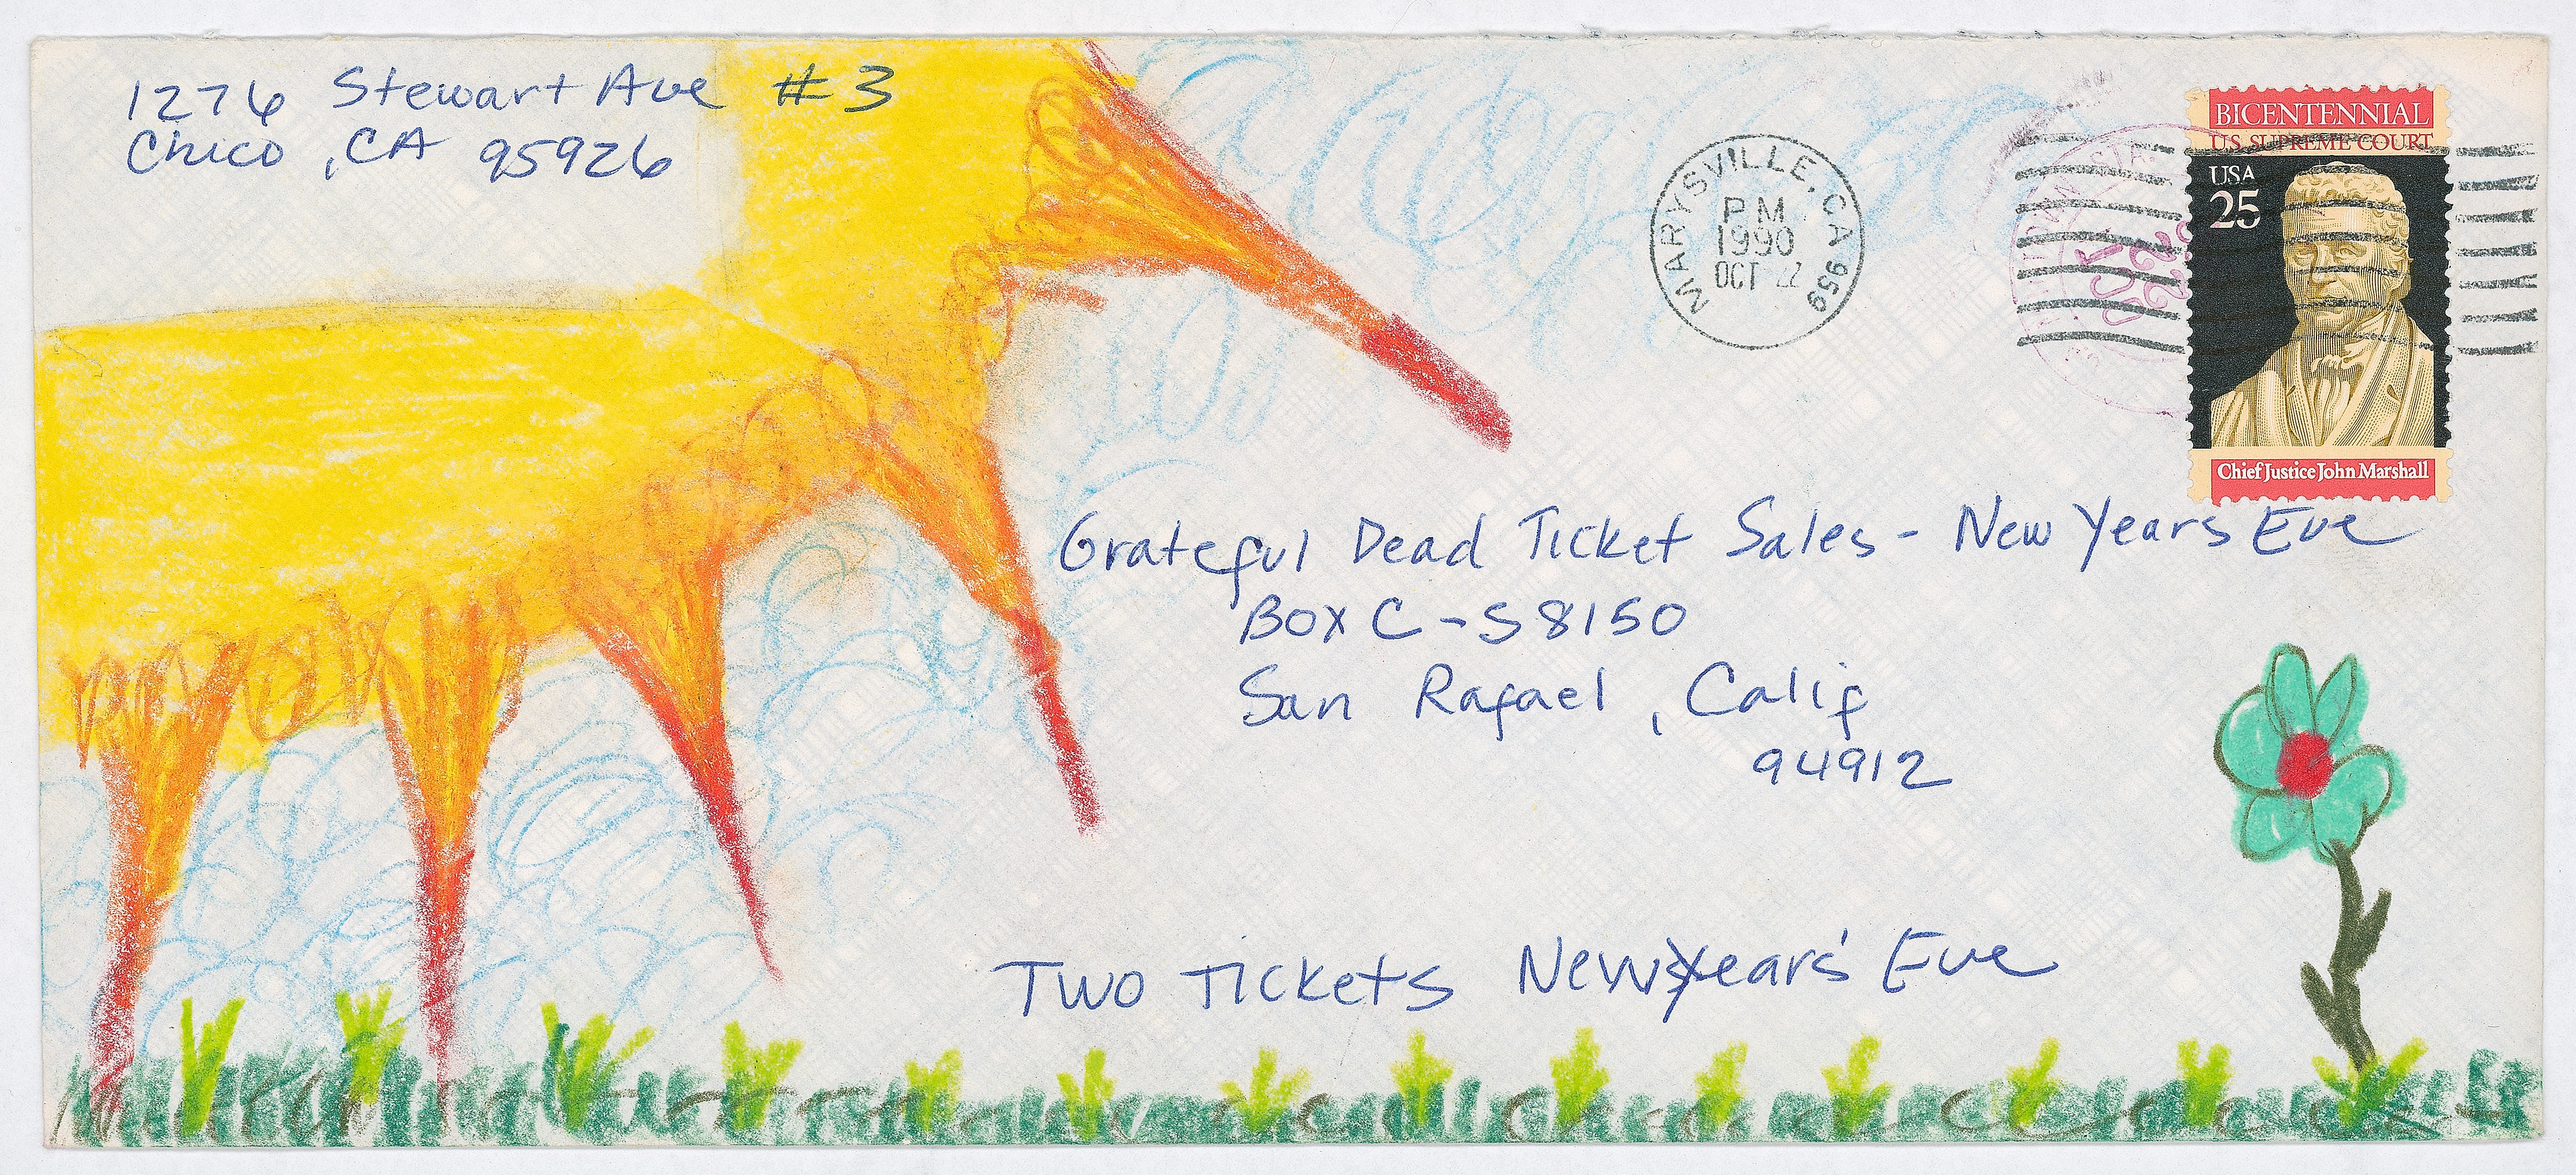 1276 Stewart Ave #3
Chico, CA 95926
MARYSVILLE, CA 959
PM
1990
OCT 22
BICENTENNIAL
U.S. SUPREME COURT
USA
25
Chief Justice John Marshall
Grateful Dead Ticket Sales - New Years Eve
BOX C-S 8150
San Rafael, Calif
94912
Two Tickets New Years' Eve